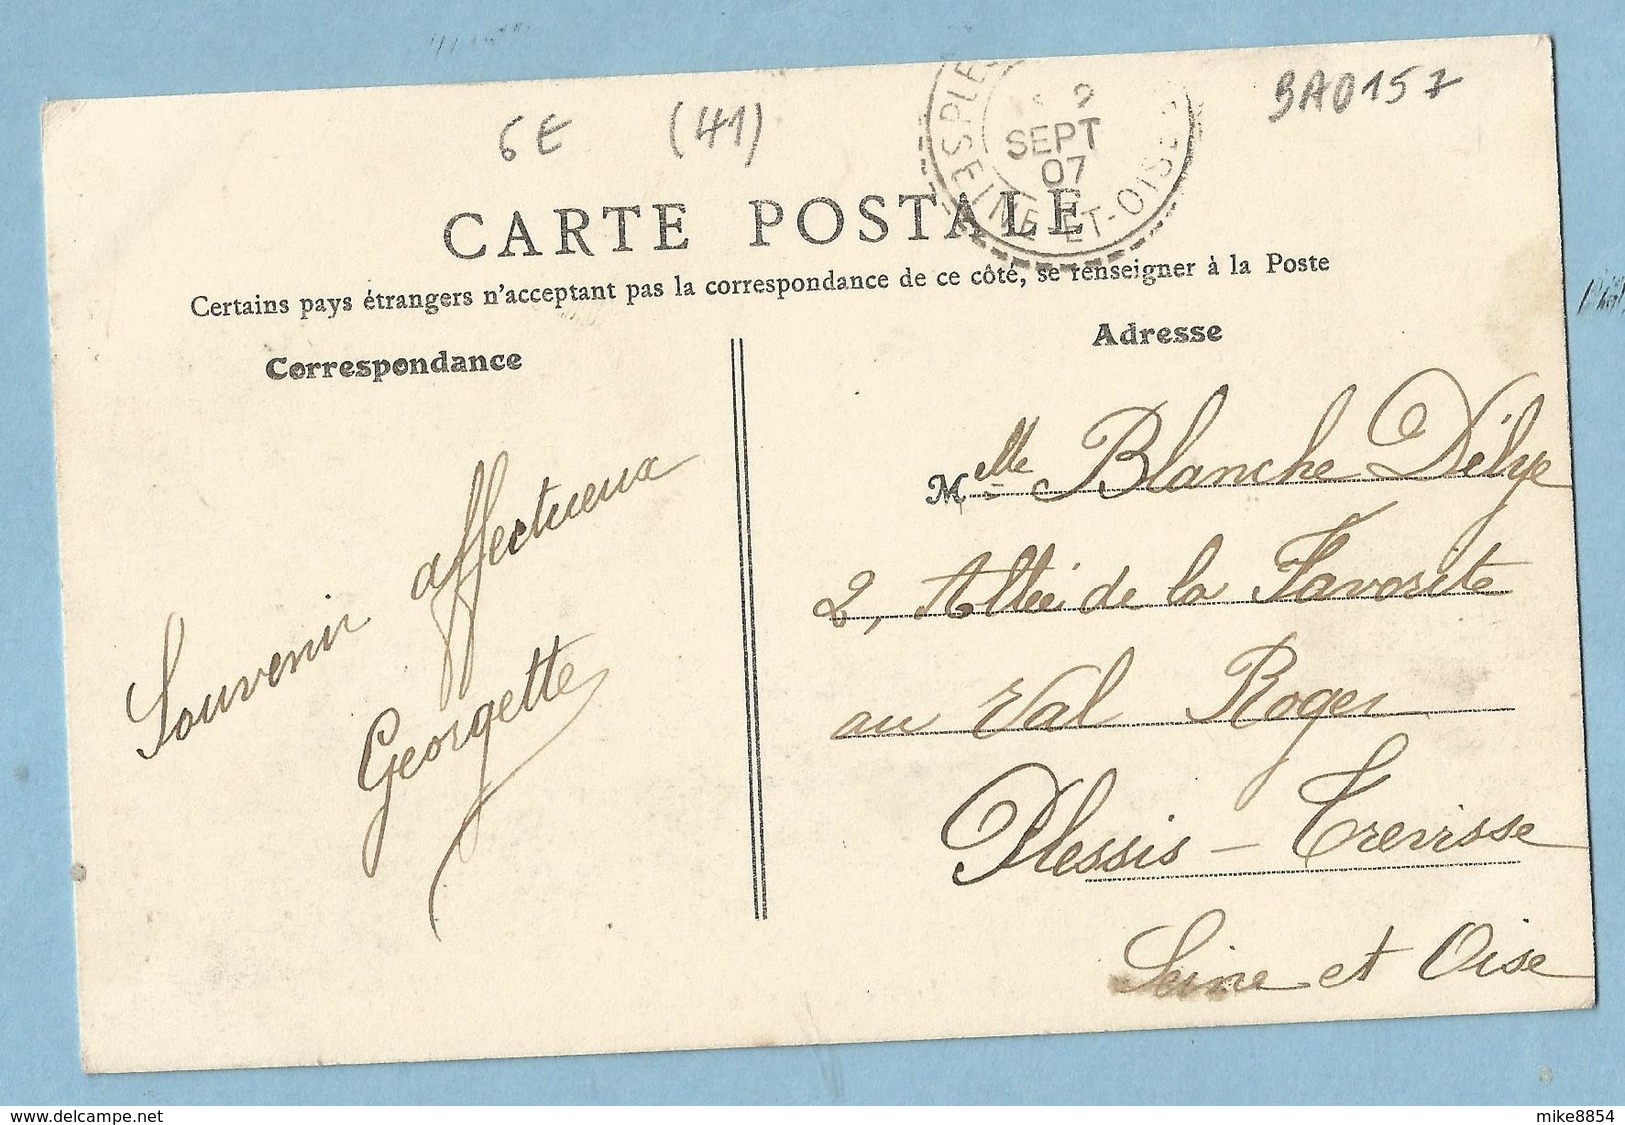 6E (41) BA0157
2
SEPT
07
SEINE-ET-OISE
CARTE POSTALE
Certains pays étrangers n'acceptant pas la correspondance de ce côté, se renseigner à la Poste
Correspondance
Adresse
Souvenir affectueux
Georgette
Mlle Blanche Délye
2, Allée de la Favorite
au Val Roger
Plessis-Trevisse
Seine et Oise
www.delcampe.net
mike8854